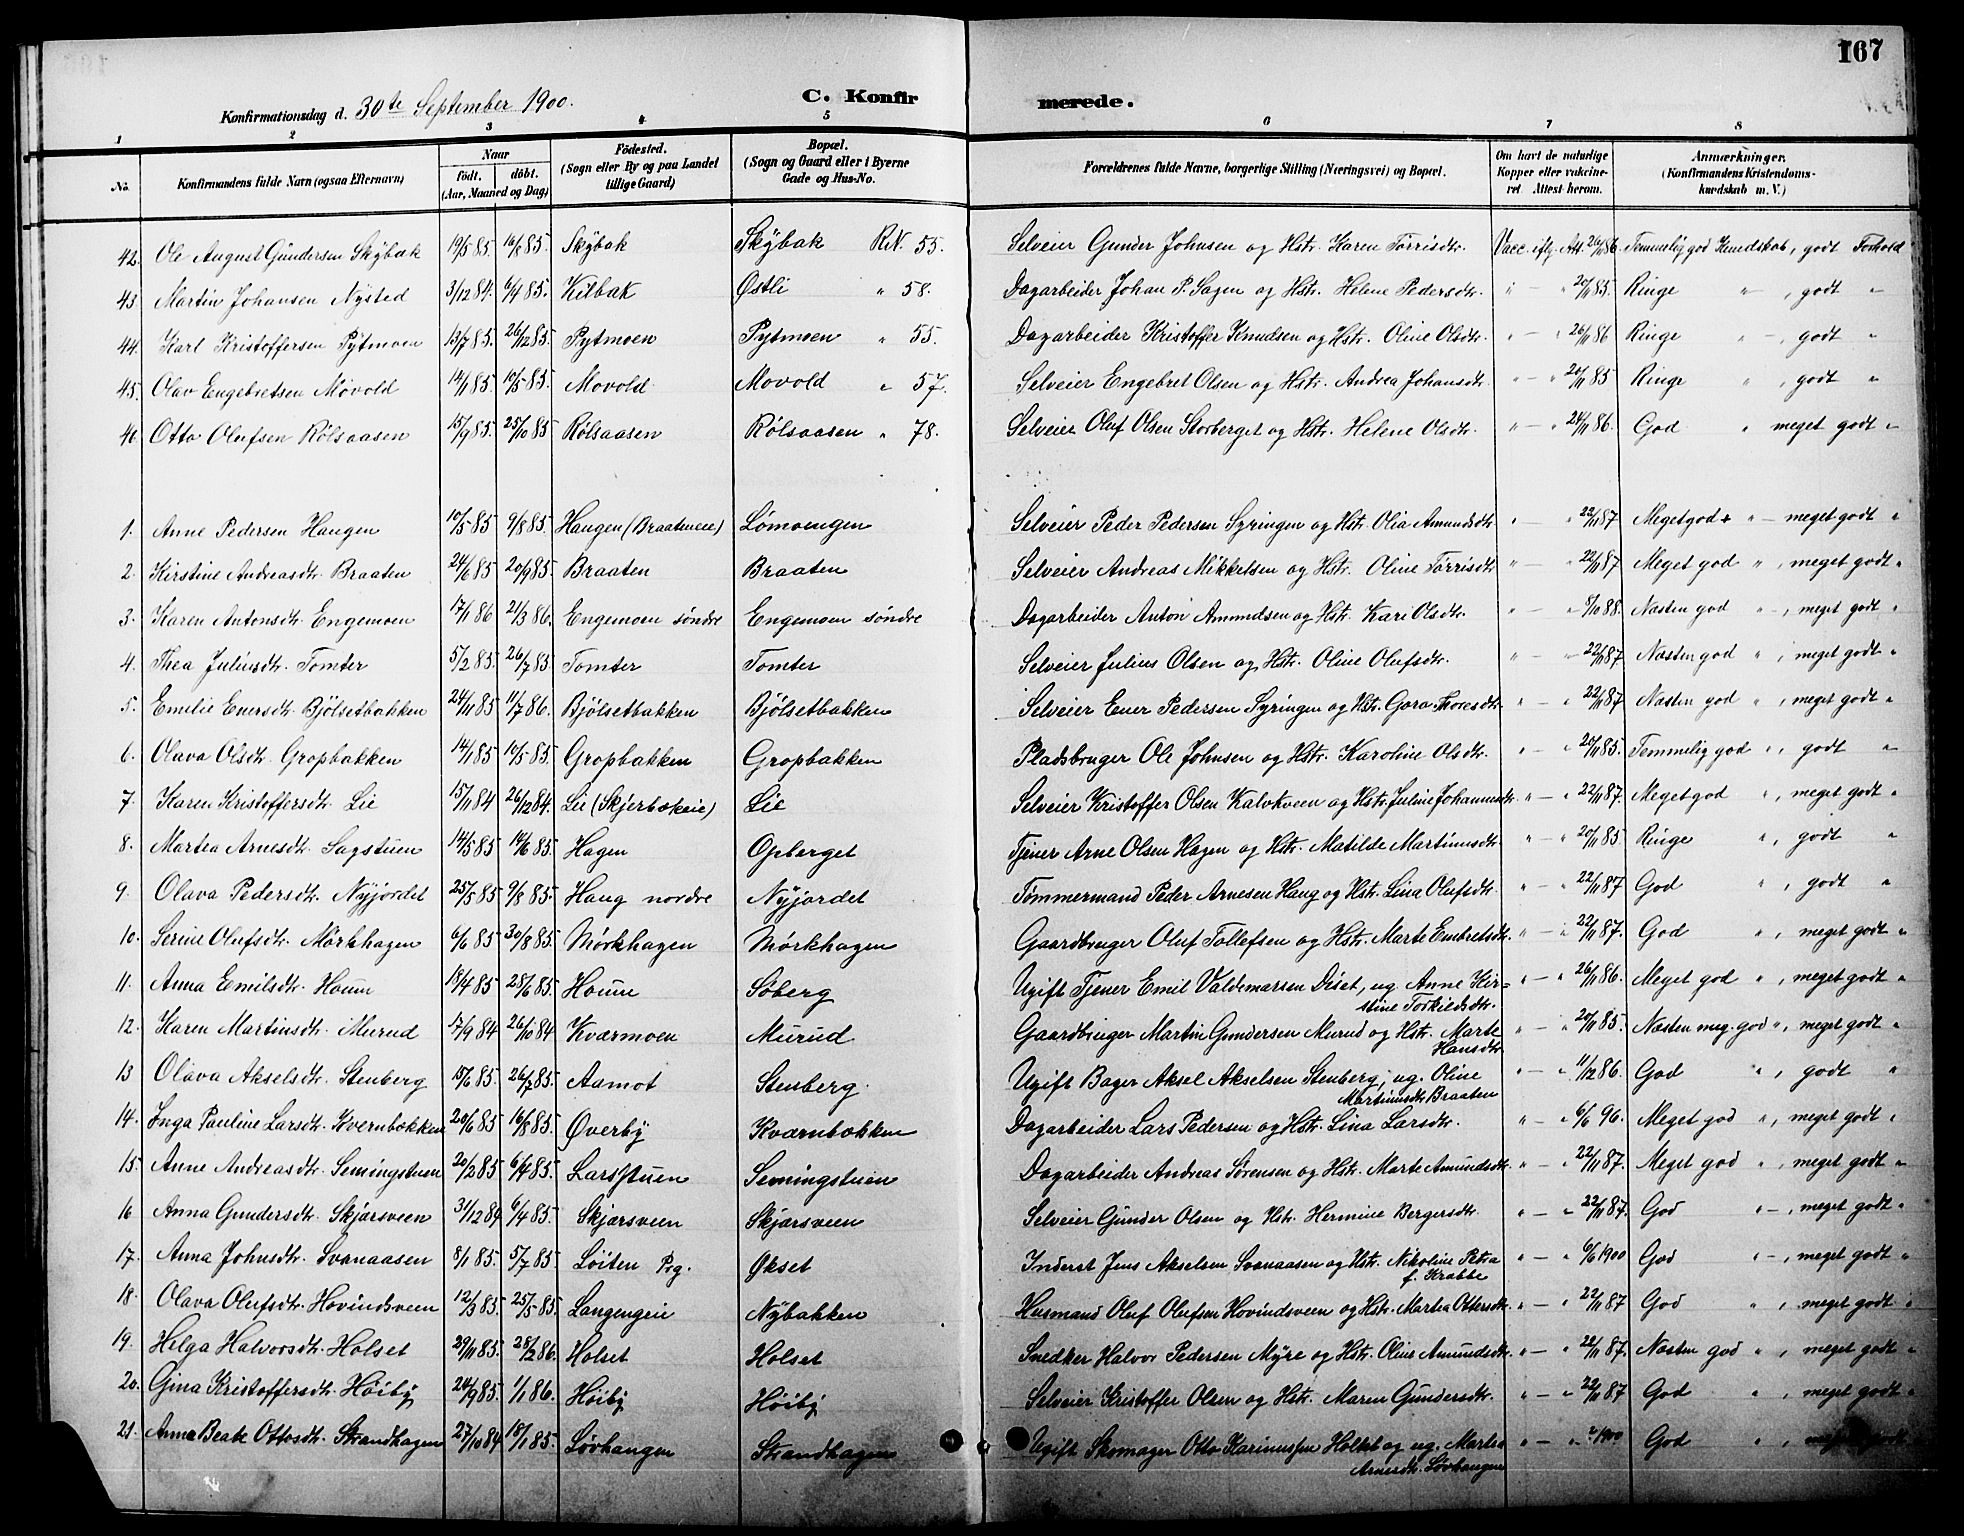 167
Konfirmationsdag d. 30te September 1900. C. Konfirmerede.
1 2 3 4 5 6 7 8
No. Konfirmandens fulde Navn (ogsaa Efternavn) Naar födt. döbt. (Aar, Maaned og Dag) Födested. (Sogn eller By og paa Landet tillige Gaard) Bopæl. (Sogn og Gaard eller i Byerne Gade og Hus-No. Forældrenes fulde Navne, borgerlige Stilling (Næringsvei) og Bopæl. Om havt de naturlige Kopper eller vakcineret. Attest herom. Anmærkninger. (Konfirmandens Kristendomskundskab m. V.)
42. Ole August Gundersen Skÿbak 19/5 85. 16/8 85. Skÿbak Skÿbak RN. 55. Selveier Gunder Johnsen og Hstr. Karen Törrisdtr. Vacc. iflg. Att. 26/11 86. Temmelig god Kundskab, godt Forhold
43. Martin Johansen Nysted 3/12 84. 6/4 85. Kilbak Østli " 58. Dagarbeider Johan P. Sagen og Hstr. Helene Pedersdtr. " — " 20/11 85. Ringe " — , godt "
44. Karl Kristoffersen Pÿtmoen 13/7 85. 26/12 85. Pytmoen Pytmoen " 55. Dagarbeider Kristoffer Knudsen og Hstr. Oline Olsdtr. " — " 26/11 86 Ringe " — , godt "
45. Olav Engebretsen Movold 14/1 85. 10/5 85. Movold Movold " 57. Selveier Engebret Olsen og Hstr. Andrea Johansdtr. " — " 20/11 85 Ringe " , godt "
46. Otto Olufsen Rölsaasen 15/9 85. 25/10 85 Rölsaasen Rölsaasen " 78. Selveier Oluf Olsen Storberget og Hstr. Helene Olsdtr. " — " 24/11 86. God " meget godt "
1. Anne Pedersen Haugen 10/5 85 9/8 85. Haugen (Braateneie) Lömoengen Selveier Peder Pedersen Syringen og Hstr. Olia Amundsdtr " — " 22/11 87 Meget god " — meget godt "
2. Kirstine Andreasdtr. Braaten 24/6 85 20/9 85. Braaten Braaten Selveier Andreas Mikkelsen og Hstr. Oline Törrisdtr " — " 22/11 87 Meget god " , meget godt "
3. Karen Antonsdtr. Engemoen 17/1 86 21/3 86. Engemoen söndre Engemoen söndre Dagarbeider Anton Amundsen og Hstr. Kari Olsdtr. " — " 8/10 88. Næsten god " — , meget godt "
4. Thea Juliusdtr. Tomter 5/2 85. 26/7 85. Tomter Tomter Selveier Julius Olsen og Hstr. Oline Olufsdtr. " — " 22/11 87 Næsten god " , meget godt "
5. Emilie Enersdtr. Bjölsetbakken 24/11 85 11/7 86. Bjölsetbakken Bjölsetbakken Selveier Ener Pedersen Syringen og Hstr. Goro Thoresdtr. " — " 22/11 87 Næsten god " , meget godt "
6. Olava Olsdtr. Gropbakken 14/1 85 10/5 85. Gropbakken Gropbakken Pladsbruger Ole Johnsen og Hstr. Karoline Olsdtr. " — " 20/11 85. Temmelig god " , godt "
7. Karen Kristoffersdtr. Lie 15/11 84 26/12 84. Lie (Skjerbækeie) Lie Selveier Kristoffer Olsen Kalvkveen og Hstr. Juline Johannesdtr. " — " 22/11 87. Meget god " , meget godt "
8. Martea Arnesdtr. Sagstuen 14/5 85 14/6 85. Hagen Opberget Tjener Arne Olsen Hagen og Hstr. Matilde Martinusdtr. " — " 20/11 85 Ringe " , godt "
9. Olava Pedersdtr. Nyjordet 25/5 85 9/8 85. Haug nordre Nyjordet Tömmermand Peder Arnesen Haug og Hstr. Lina Olufsdtr. " — " 22/11 87 God " , godt "
10. Serine Olufsdtr. Mörkhagen 6/6 85 30/8 85. Mörkhagen Mörkhagen Gaardbruger Oluf Tollefsen og Hstr. Marte Embretsdtr. " — " 22/11 87. God " , meget godt "
11. Anna Emilsdtr. Houm 18/4 85 28/6 85. Houm Söberg Ugift Tjener Emil Valdemarsen Diset, ug. Anne Kir= " — " 26/11 86. Meget god " , meget godt "
stine Torkildsdtr.
12. Karen Martinsdtr. Murud 17/9 84 26/10 84 Kværmoen Murud Gaardbruger Martin Gundersen Murud og Hstr. Marte " — " 20/11 85. Næsten meg. god " , meget godt "
Hansdtr.
13 Olava Akselsdtr. Stenberg 15/6 85. 26/7 85. Aamot Stenberg. Ugift Bager Aksel Akselsen Stenberg, ug. Oline " — " 11/12 86. God " , godt "
Martinusdtr. Braaten
14. Inga Pauline Larsdtr. Kvernbækken 20/6 85 16/8 85. Øverby Kværnbækken Dagarbeider Lars Pedersen og Hstr. Lina Larsdtr. " — " 6/6 96. Meget god " , meget godt "
15. Anne Andreasdtr. Semingstuen 20/2 85 6/4 85. Larsstuen Semingstuen Dagarbeider Andreas Sörensen og Hstr. Marte Amundsdtr. " — " 22/11 87. Meget god " , meget godt "
16 Anna Gundersdtr. Skjærsveen 31/12 84 6/4 85. Skjærsveen Skjærsveen Selveier Gunder Olsen og Hstr. Hermine Bergersdtr. " — " 22/11 87. God " — , meget godt "
17. Anna Johnsdtr. Svanaasen 8/1 85. 5/7 85. Löiten Prg. Økset Inderst Jens Akselsen Svanaasen og Hstr. Nikoline Petra " — " 6/6 1900 God " — , meget godt "
f. Krabbe
18. Olava Olufsdtr. Hovindsveen 12/3 85. 25/5 85. Langengeie Nÿbakken Husmand Oluf Olufsen Hovindsveen og Hstr. Martea Ottersdtr. " — " 22/11 87 God " , meget godt "
19. Helga Halvorsdtr. Holset 29/11 85. 28/2 86. Holset Holset Snedker Halvor Pedersen Myre og Hstr. Oline Amundsdtr. " — " 22/11 87. Næsten god " , meget godt "
20. Gina Kristoffersdtr. Höiby 24/9 85. 1/1 86. Höiby Höiby Selveier Kristoffer Olsen og Hstr. Maren Gundersdtr. " — " 22/11 87 God " , meget godt "
21. Anna Beate Ottosdtr. Strandhagen 27/10 84 18/1 85. Lövhaugen Strandhagen Ugift Skomager Otto Karinussen Holset og ug. Martea " — " 1900 God "
Arnesdtr. Lövhaugen